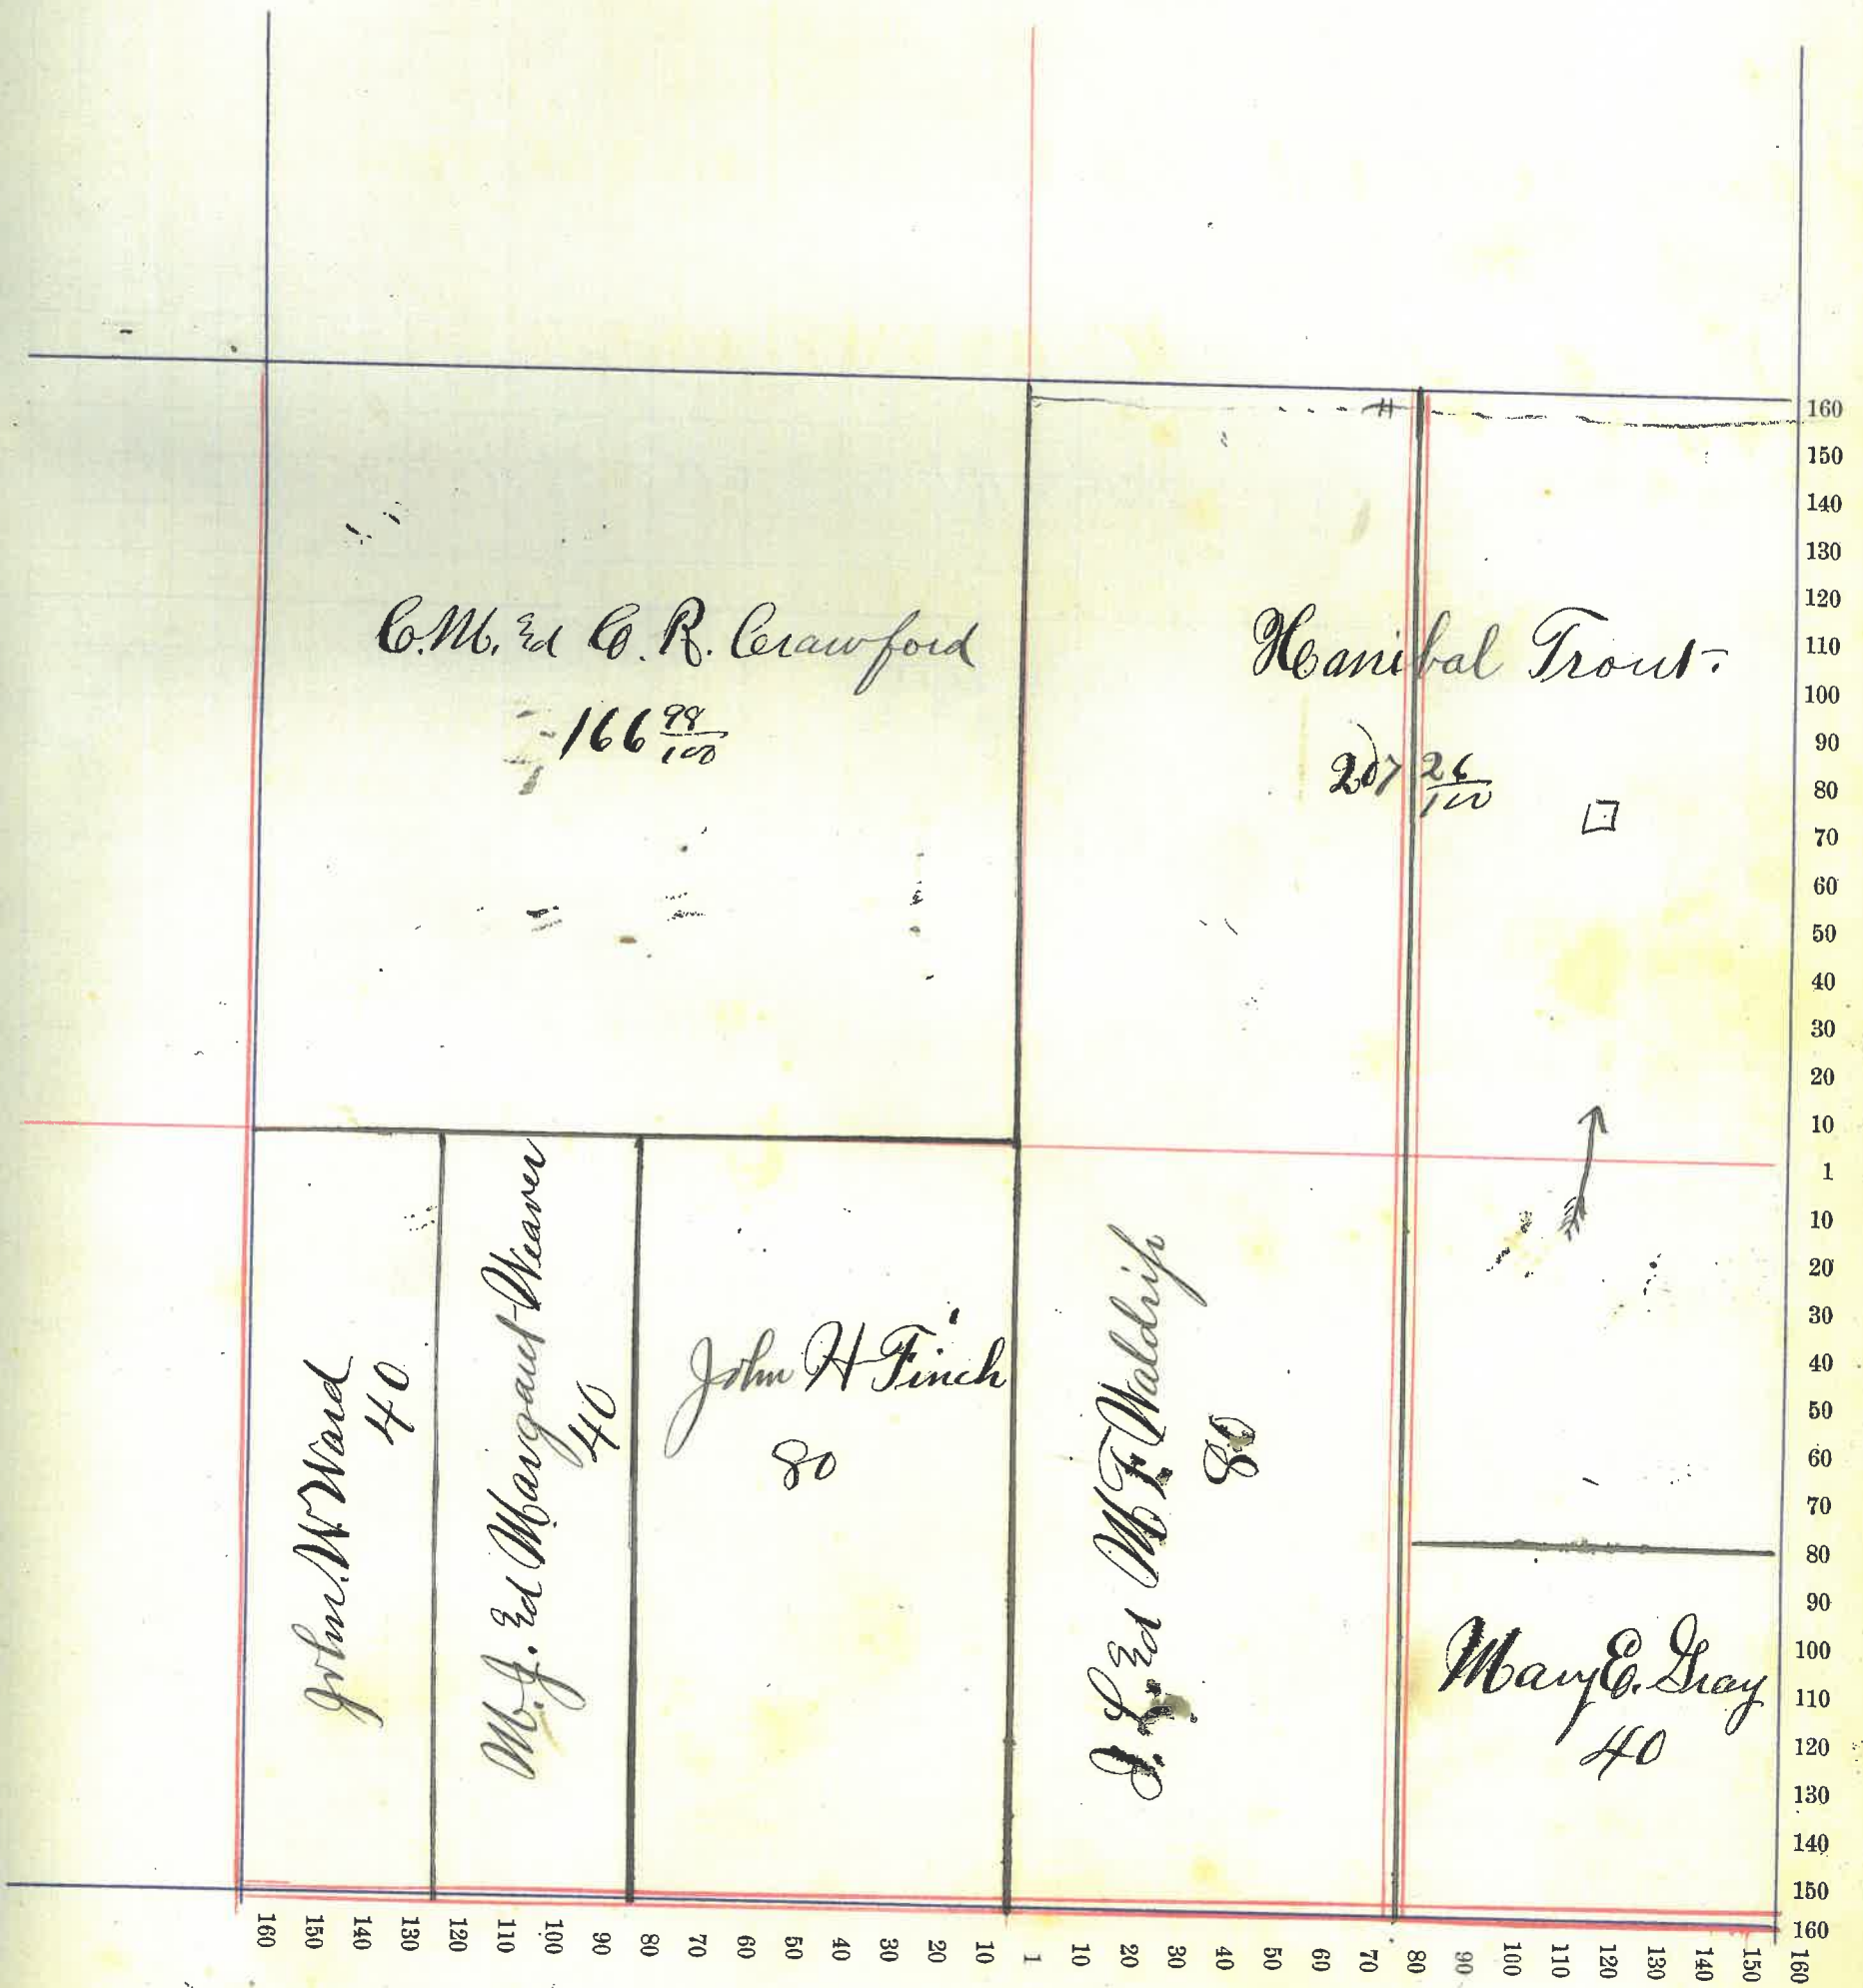 C.M. Ed C. R. Crawford
166 98/100
Hanibal Trout.
207 26/100
John. W. Ward
40
M. J. Ed Margaret Weaver
40
John H Finch
80
L. Ed M F. Waldrip
80
Mary E. Gray
40
160
150
140
130
120
110
100
90
80
70
60
50
40
30
20
10
1
10
20
30
40
50
60
70
80
90
100
110
120
130
140
150
160
160 150 140 130 120 110 100 90 80 70 60 50 40 30 20 10 1 10 20 30 40 50 60 70 80 90 100 110 120 130 140 150 160